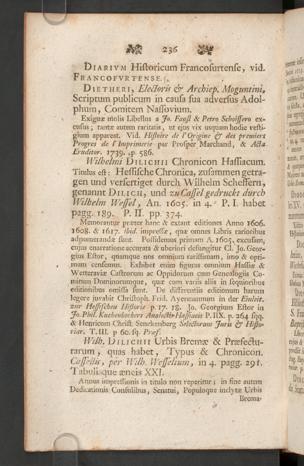 236
DIARIUM Historicum Francofurtense, vid.
FRANCOFURTENSE.
DIETHERI, Electoris & Archiep. Moguntini,
Scriptum publicum in causa sua adversus Adol-
phum, Comitem Nassovium.
Exiguæ molis Libellus a Jo. Faust & Petro Schoiffero ex-
cusus; tante autem raritatis, ut ejus vix usquam hodie vesti-
gium appareat. Vid. Histoire de l'Origine & des premiers
Progres de l'Imprimerie par Prosper Marchand, & Acta
Eruditor. 1739. p. 586.
Wilhelmi DILICHII Chronicon Hassiacum.
Titulus est: Hessische Chronica, zusammen getra-
gen und verfertiget durch Wilhelm Scheffern,
genannt DILICH, und zu Cassel gedruckt durch
Wilhelm Wessel, An. 1605. in 4. P. I. habet
pagg. 189. P. II. pp. 374.
Memorantur præter hanc & exant editiones Anno 1606.
1608. & 1617. ibid. impressæ, quæ omnes Libris rarioribus
adnumerandæ sunt. Possidemus primam A. 1605, excusam,
cujus enarratione accepta & uberiori defungitur Cl. Jo. Geor-
gius Estor, quamque nos omnium rarissimam, imo & opti-
mam censemus. Exhibet enim figuras omnium Hassiæ &
Wetteraviæ Castrorum ac Oppidorum cum Genealogiis Co-
mitum Dominorumque, quæ cum variis aliis in sequioribus
editionibus omissa sunt. De distinctis editionum harum
legere juvabit Christoph. Frid. Ayermannum in der Einleit.
zur Hessischen Historie p. 17. 18. Jo. Georgium Estor in
Jo. Phil. Kuchenbeckers Analectis Hassiacis P. IIX. p. 264 sqq.
& Henricum Christ. Senckenberg Selectorum Juris & Histo-
riar. T. III. p 60. sq Præf.
Wilh. DILICHII Urbis Bremæ & Præfectu-
rarum, quas habet, Typus & Chronicon.
Cassellis, per Wilh. Wesselium, in 4. pagg. 291.
Tabulisque æneis XXI.
Annus impressionis in titulo non reperitur; in fine autem
Dedicationis Consulibus, Senatui, Populoque inclytæ Urbis
Brema-